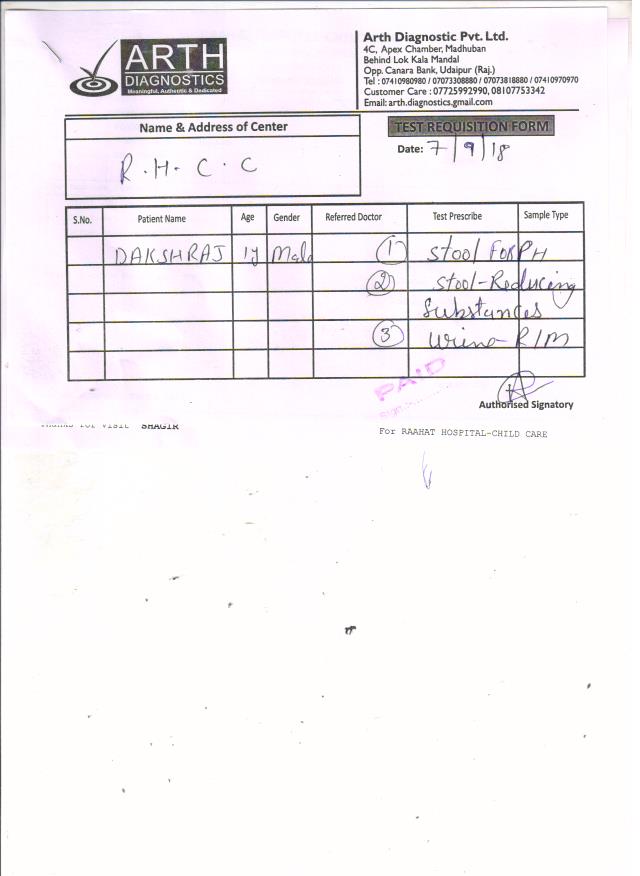 ARTH
DIAGNOSTICS
Meaningful, Authentic & Dedicated
Arth Diagnostic Pvt. Ltd.
4C, Apex Chamber, Madhuban
Behind Lok Kala Mandal
Opp. Canara Bank, Udaipur (Raj.)
Tel : 07410980980 / 07073308880 / 07073818880 / 07410970970
Customer Care : 07725992990, 08107753342
Email: arth.diagnostics.gmail.com
Name & Address of Center
R.H.C.C
TEST REQUISITION FORM
Date: 7/9/18
S.No. Patient Name Age Gender Referred Doctor Test Prescribe Sample Type
DAKSHRAJ 1y Male ① Stool For PH
② Stool-Reducing
Substances
③ Urine R/M
PAID
Authorised Signatory
THANKS FOR VISIT SHAGIR
For RAAHAT HOSPITAL-CHILD CARE